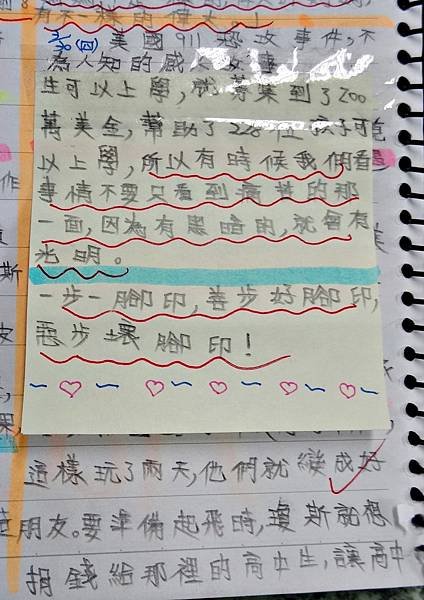 有不一樣的偉大。!
3/30(四) 美國911恐攻事件,不
為人知的感人故事
生可以上學,就募集到了200
萬美金,幫助了228位孩子可
以上學,所以有時候我們看
事情不要只看到痛苦的那
一面,因為有黑暗的,就會有
光明。
一步一腳印,善步好腳印,
惡步壞腳印!
這樣玩了兩天,他們就變成好
朋友。要準備起飛時,瓊斯就想
捐錢給那裡的高中生,讓高中